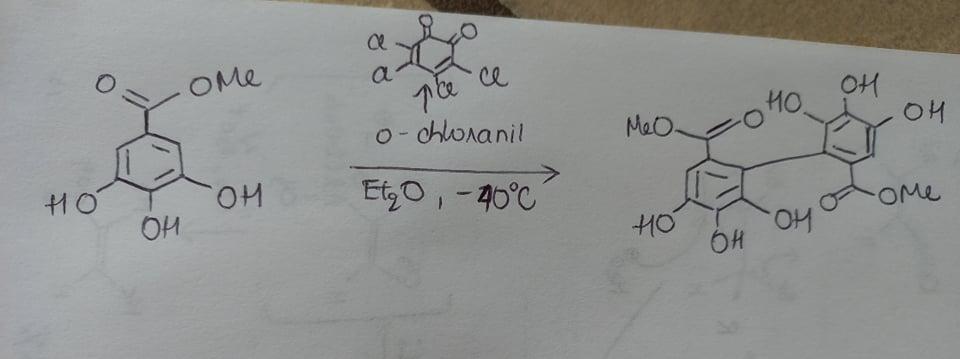 O OMe
HO OH
OH
O O
Cl Cl
Cl Cl
o-chloranil
Et₂O, -40°C
MeO O
HO OH
OH
HO OH OH
O OMe